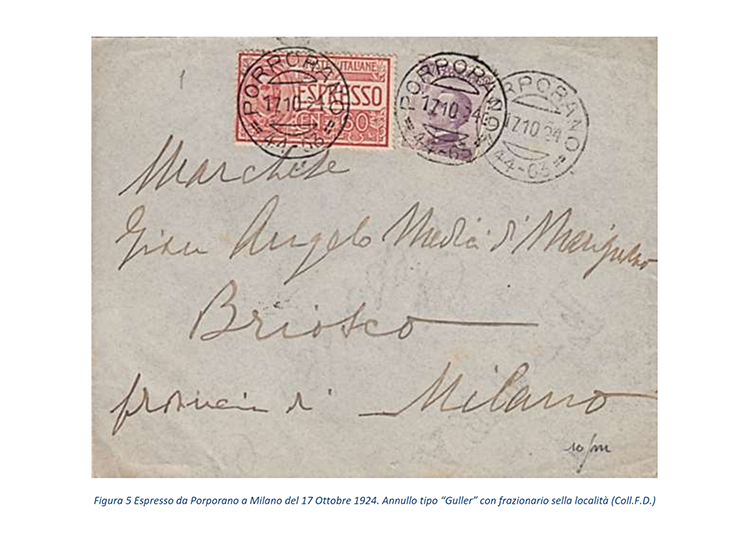 ITALIANE
ESPRESSO
CEN 60
PORPORANO
17.10.24
44-63
PORPORANO
17.10.24
44-63
RPORANO
17.10.24
44-63
Marchese
Gian Angelo Medici di Marignano
Briosco
provincia di Milano
Figura 5 Espresso da Porporano a Milano del 17 Ottobre 1924. Annullo tipo “Guller” con frazionario sella località (Coll.F.D.)